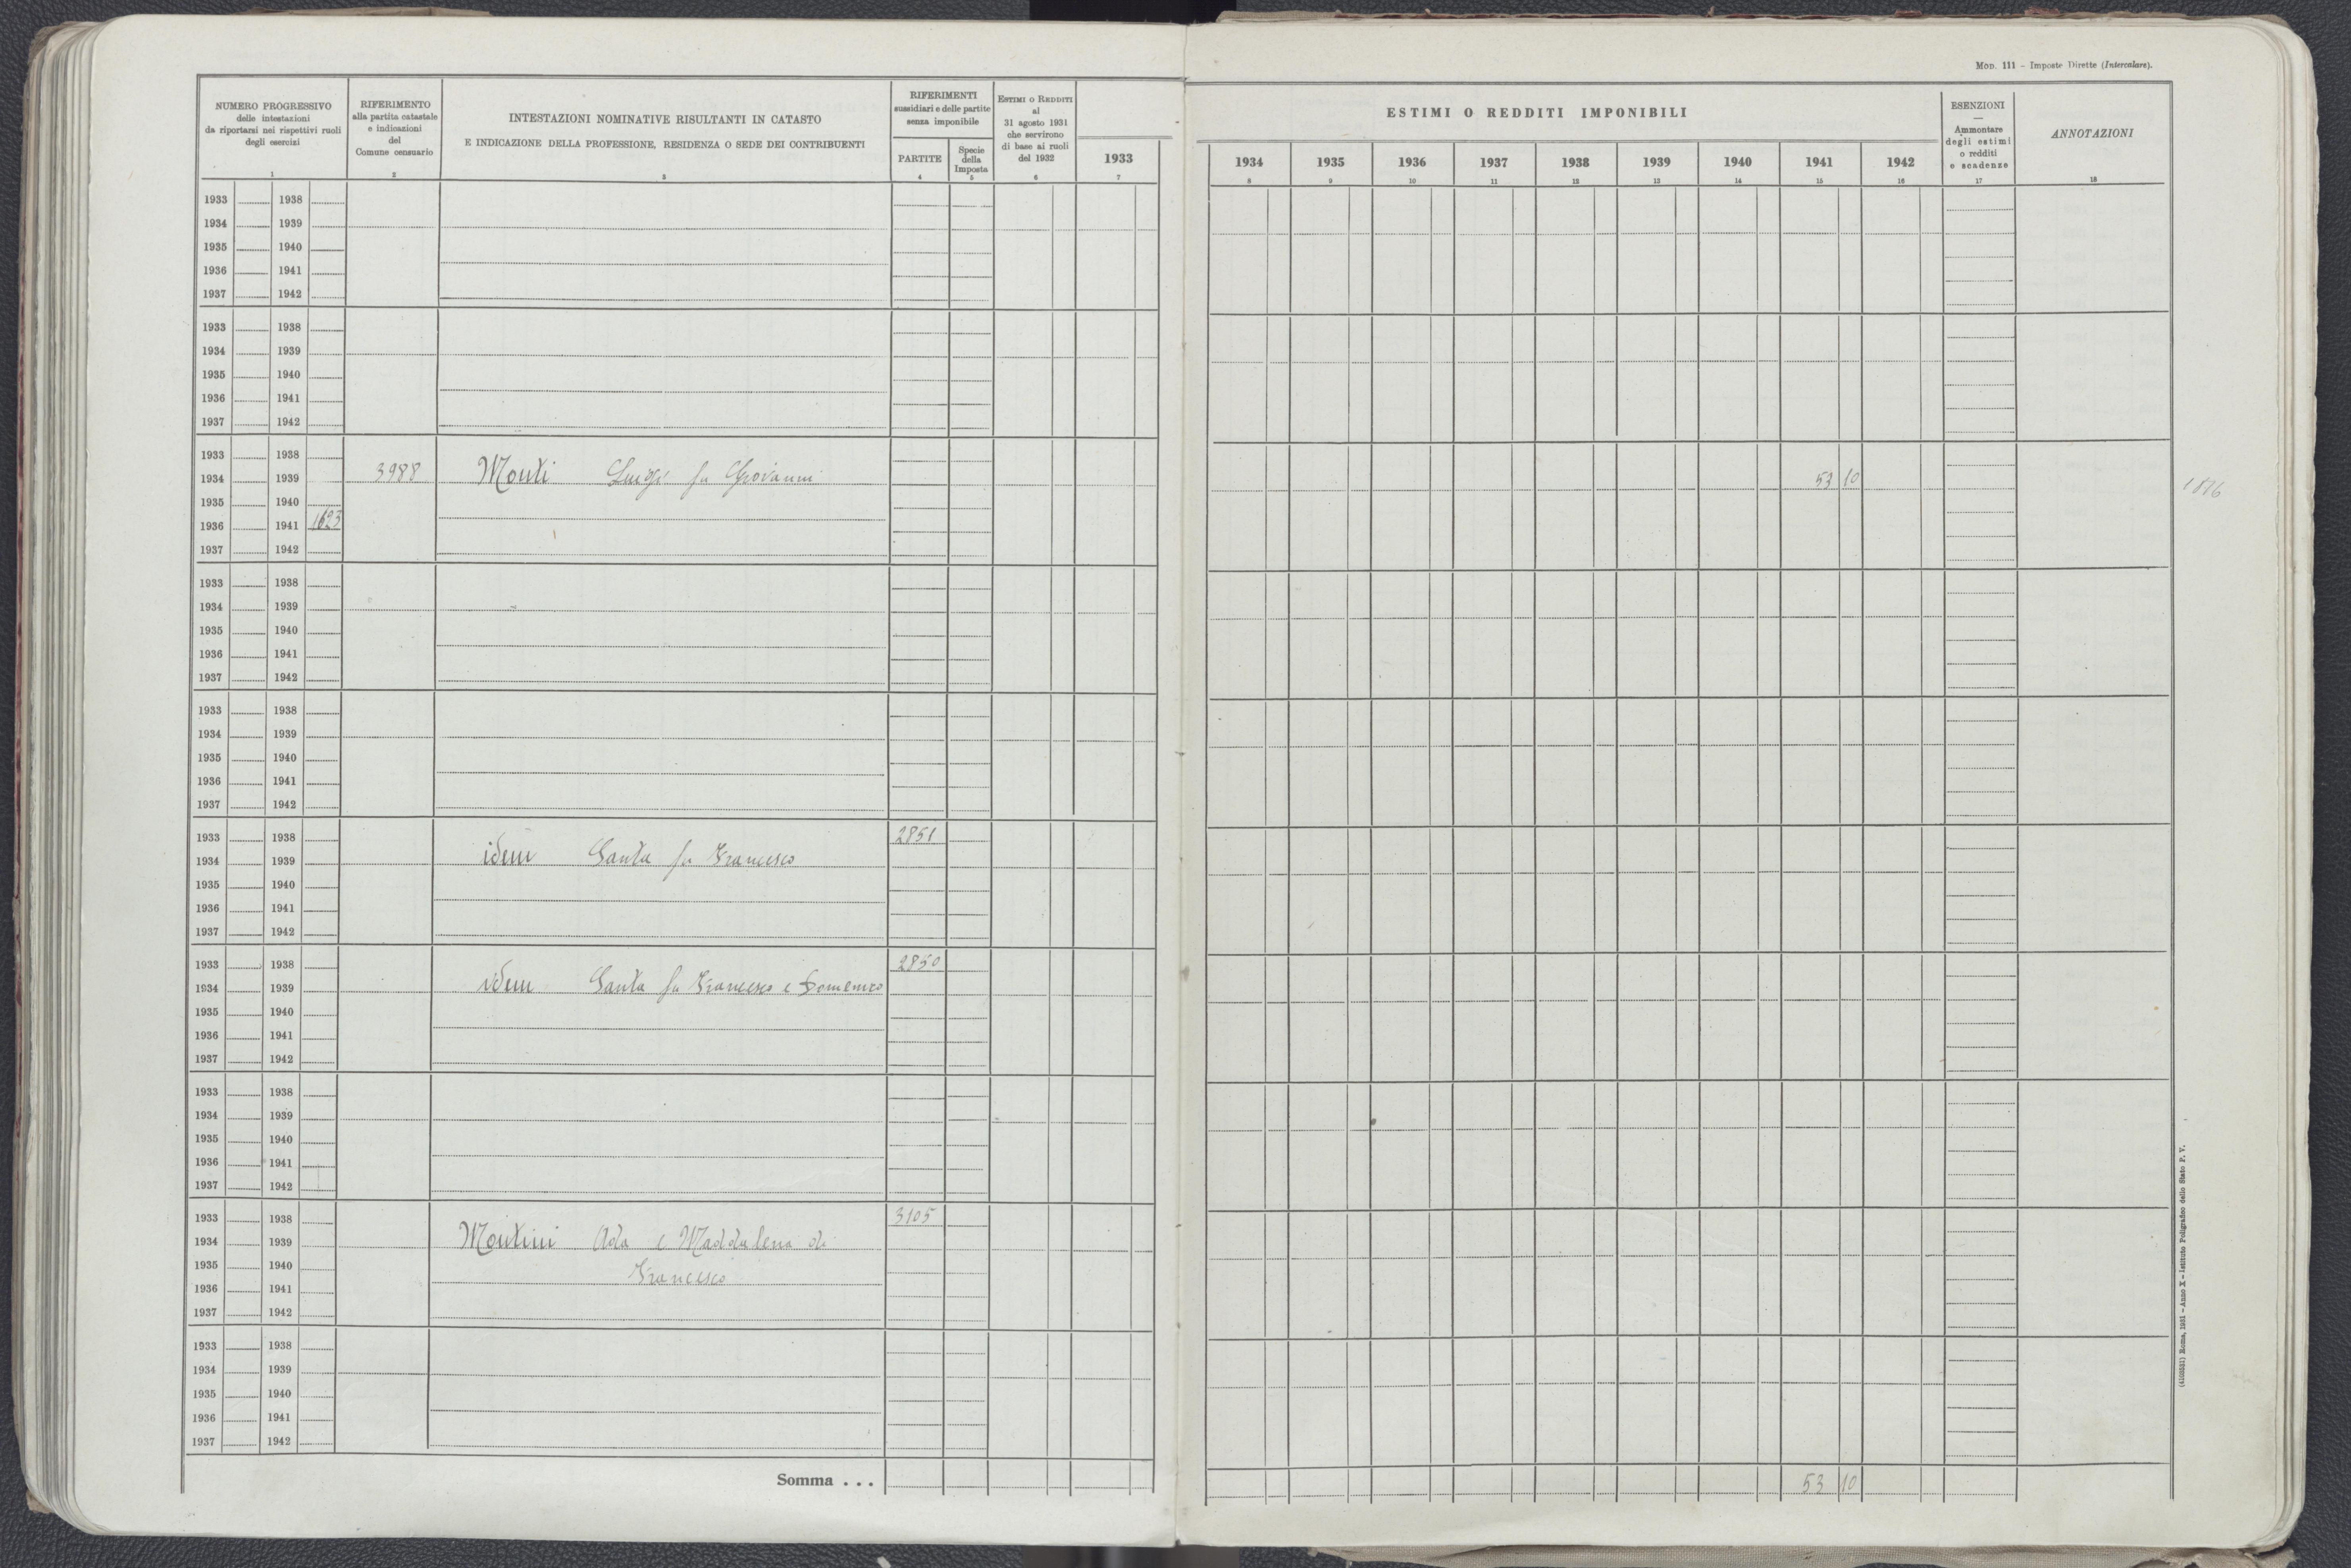 Mod. 111 - Imposte Dirette (Intercalare).
NUMERO PROGRESSIVO
delle intestazioni
da riportarsi nei rispettivi ruoli
degli esercizi
1
RIFERIMENTO
alla partita catastale
e indicazioni
del
Comune censuario
2
INTESTAZIONI NOMINATIVE RISULTANTI IN CATASTO
E INDICAZIONE DELLA PROFESSIONE, RESIDENZA O SEDE DEI CONTRIBUENTI
3
RIFERIMENTI
sussidiari e delle partite
senza imponibile
PARTITE
4
Specie
della
Imposta
5
Estimi o Redditi
al
31 agosto 1931
che servirono
di base ai ruoli
del 1932
6
1933
7
ESTIMI O REDDITI IMPONIBILI
1934 1935 1936 1937 1938 1939 1940 1941 1942
8 9 10 11 12 13 14 15 16
ESENZIONI
—
Ammontare
degli estimi
o redditi
e scadenze
17
ANNOTAZIONI
18
1933 1938
1934 1939
1935 1940
1936 1941
1937 1942
1933 1938
1934 1939
1935 1940
1936 1941
1937 1942
1933 1938
1934 1939 3988 Monti Luigi fu Giovanni 53 10 1816
1935 1940
1936 1941 1623
1937 1942
1933 1938
1934 1939
1935 1940
1936 1941
1937 1942
1933 1938
1934 1939
1935 1940
1936 1941
1937 1942
1933 1938 2851
1934 1939 idem Santa fu Francesco
1935 1940
1936 1941
1937 1942
1933 1938 2850
1934 1939 idem Santa fu Francesco e Domenico
1935 1940
1936 1941
1937 1942
1933 1938
1934 1939
1935 1940
1936 1941
1937 1942
1933 1938 3105
1934 1939 Montini Ada e Maddalena di
1935 1940 Francesco
1936 1941
1937 1942
1933 1938
1934 1939
1935 1940
1936 1941
1937 1942
Somma . . . 53 10
(4103331) Roma, 1931 - Anno X - Istituto Poligrafico dello Stato P. V.